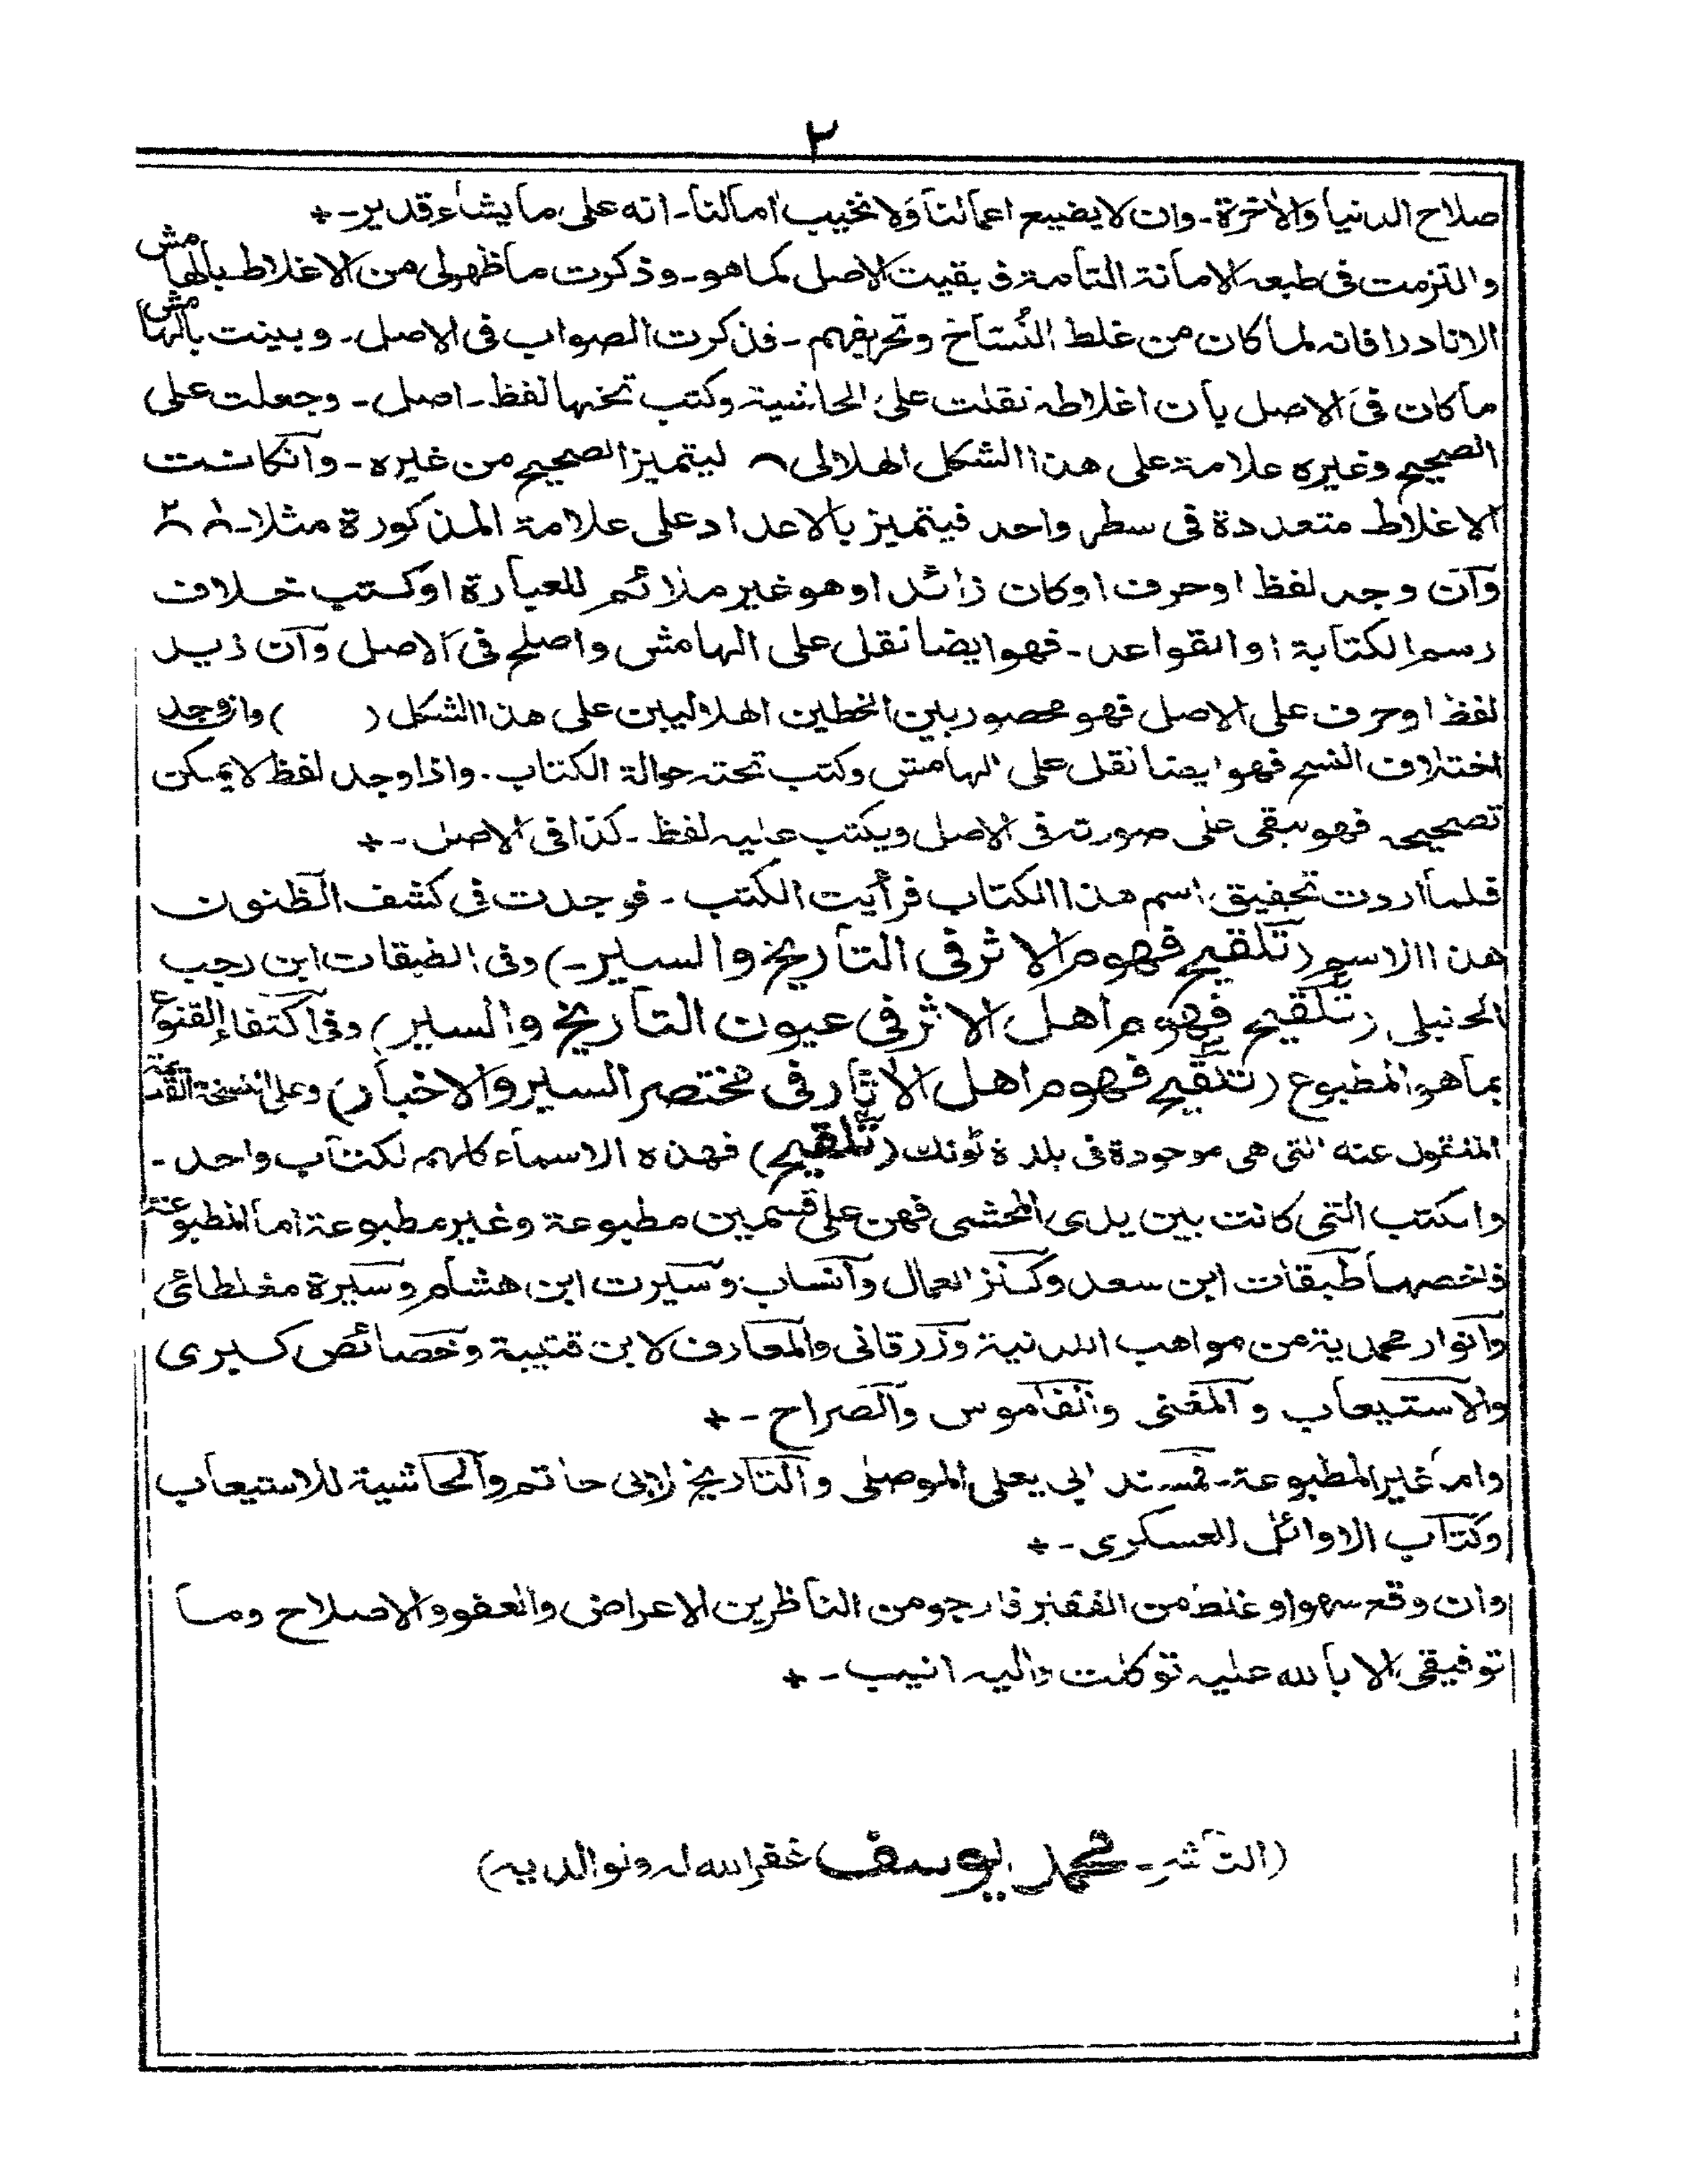 ٢
صلاح الدنيا والاخرة - وان لا يضيع اعمالنا ولا نخيب امالنا - انه على ما يشاء قدير - +
والتزمت فى طبعه الامانة التامة فبقيت الاصل كما هو - وذكرت ما ظهر لى من الاغلاط بالهامش
الا نادرا فانه لما كان من غلط النُسّاخ وتحريفهم - فذكرت الصواب فى الاصل - وبينت بالهامش
ما كان فى الاصل بان اغلاطه نقلت على الحاشية وكتب تحتها لفظ - اصل - وجعلت على
الصحيح وغيره علامة على هذا الشكل الهلالى ⌒ ليتميز الصحيح من غيره - وآن كانت
الاغلاط متعددة فى سطر واحد فيتميز بالاعداد على علامة المذكورة مثلا - ١ ٢
وآن وجد لفظ او حرف او كان زائد او هو غير ملائم للعبارة او كتب خلاف
رسم الكتابة او القواعد - فهو ايضا نقل على الهامش واصلح فى الاصل وآن زيد
لفظ او حرف على الاصل فهو محصور بين الخطين الهلاليين على هذا الشكل ( ) وان وجد
اختلاف النسخ فهو ايضا نقل على الهامش وكتب تحته حوالة الكتاب - واذا وجد لفظ لا يمكن
تصحيحه فهو يبقى على صورته فى الاصل ويكتب عليه لفظ - كذا فى الاصل - +
فلما اردت تحقيق اسم هذا الكتاب فرأيت الكتب - فوجدت فى كشف الظنون
هذا الاسم (تلقيح فهوم الاثر فى التاريخ والسير -) وفى الطبقات ابن رجب
الحنبلى (تلقيح فهوم اهل الاثر فى عيون التاريخ والسير) وفى اكتفاء القنوع
بما هو المطبوع (تلقيح فهوم اهل الآثار فى مختصر السير والاخبار) وعلى النسخة القديمة
المنقول عنه التى هى موجودة فى بلدة ٹونك (تلقيح) فهذه الاسماء كلهم لكتاب واحد -
والكتب التى كانت بين يدى المحشى فهن على قسمين مطبوعة وغير مطبوعة اما المطبوعة
فاخصها طبقات ابن سعد وكنز العمال وآنساب وسيرت ابن هشام وسيرة مغلطائى
وآنوار محمدية من مواهب اللدنية وزرقانى والمعارف لابن قتيبة وخصائص كبرى
والاستيعاب والمغنى والقاموس والصراح - +
واما غير المطبوعة - فمسند ابى يعلى الموصلى والتاريخ لابى حاتم والحاشية للاستيعاب
وكتاب الاوائل للعسكرى - +
وان وقع سهوا و غلط من الفقير فارجو من الناظرين الاعراض والعفو والاصلاح وما
توفيقى الا بالله عليه توكلت واليه انيب - +
(الناشر - محمد يوسف غفر الله له ولوالديه)